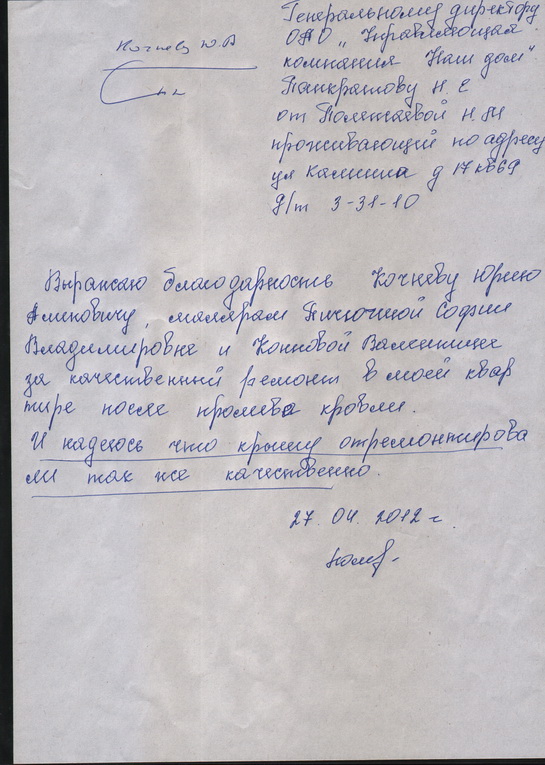 Генеральному директору
ОАО „Управляющая
компания "Наш дом"
Панкратову Н. Е
от Полетаевой Н.М
проживающий по адресу
ул Калинина д 17 кв69
д/т 3-31-10
Кочневу Ю.А
Выражаю благодарность Кочневу Юрию
малярам Пичугиной Софии
Владимировне и Конновой Валентине
за качественный ремонт в моей квар
тире после пролива кровли.
И надеюсь что крышу отремонтирова
ли так же качественно.
27. 04. 2012 г.